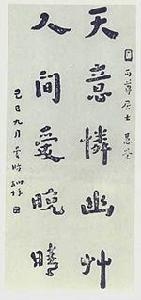 天意憐幽艸
人間愛晚晴
居士
己巳九月